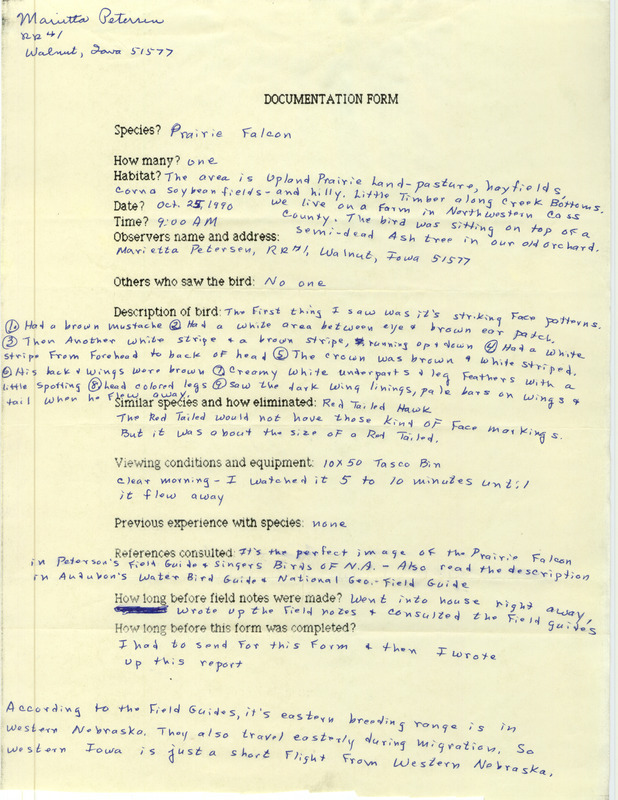 Marietta Petersen
RR #1
Walnut, Iowa 51577
DOCUMENTATION FORM
Species? Prairie Falcon
How many? one
Habitat? The area is Upland Prairie Land-pasture, hayfields,
corn & soybean fields-and hilly. Little Timber along Creek Bottoms.
Date? Oct. 25, 1990 we live on a Farm in Northwestern Cass
Time? 9:00 AM County. The bird was sitting on top of a
Observers name and address: semi-dead Ash tree in our old orchard.
Marietta Petersen, RR#1, Walnut, Iowa 51577
Others who saw the bird: No one
Description of bird: The First thing I saw was it's striking Face patterns.
① Had a brown mustache ② Had a white area between eye & brown ear patch.
③ Then Another white stripe & a brown stripe, running up & down ④ Had a white
stripe From Forehead to back of head ⑤ The crown was brown & white striped.
⑥ His back & wings were brown ⑦ Creamy white underparts & leg Feathers with a
little spotting ⑧ lead colored legs ⑨ Saw the dark wing linings, pale bars on wings &
tail when he Flew away.
Similar species and how eliminated: Red Tailed Hawk
The Red Tailed would not have those kind of Face markings.
But it was about the size of a Red Tailed.
Viewing conditions and equipment: 10x50 Tasco Bin
clear morning - I watched it 5 to 10 minutes until
it flew away
Previous experience with species: none
References consulted: It's the perfect image of the Prairie Falcon
in Peterson's Field Guide & Singers Birds of N.A. - Also read the description
in Audubon's Water Bird Guide & National Geo.-Field Guide
How long before field notes were made? Went into house right away,
wrote up the Field notes & consulted the Field guides
How long before this form was completed?
I had to send For this Form & then I wrote
up this report
According to the Field Guides, it's eastern breeding range is in
Western Nebraska. They also travel easterly during migration. So
western Iowa is just a short Flight From Western Nebraska.